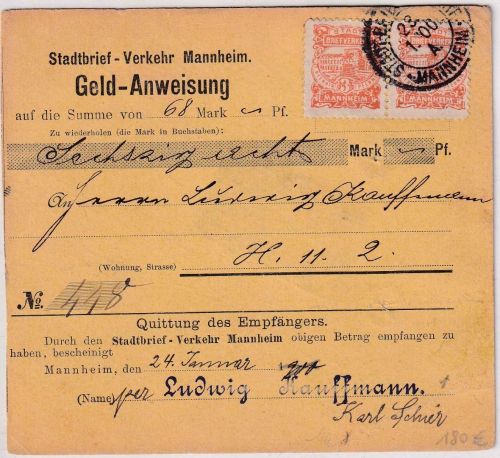 STADT-BRIEF
VERKEHR
3
MANNHEIM
MANNHEIM
1.00
Stadtbrief-Verkehr Mannheim.
Geld-Anweisung
auf die Summe von 68 Mark ~ Pf.
Zu wiederholen (die Mark in Buchstaben):
Sechszig acht Mark ~ Pf.
An Herrn Ludwig Kauffmann
H. 11. 2.
(Wohnung, Strasse)
No. 448
Quittung des Empfängers.
Durch den Stadtbrief-Verkehr Mannheim obigen Betrag empfangen zu
haben, bescheinigt
Mannheim, den 24. Januar 1900
(Name) per Ludwig Kauffmann.
Karl
180 €